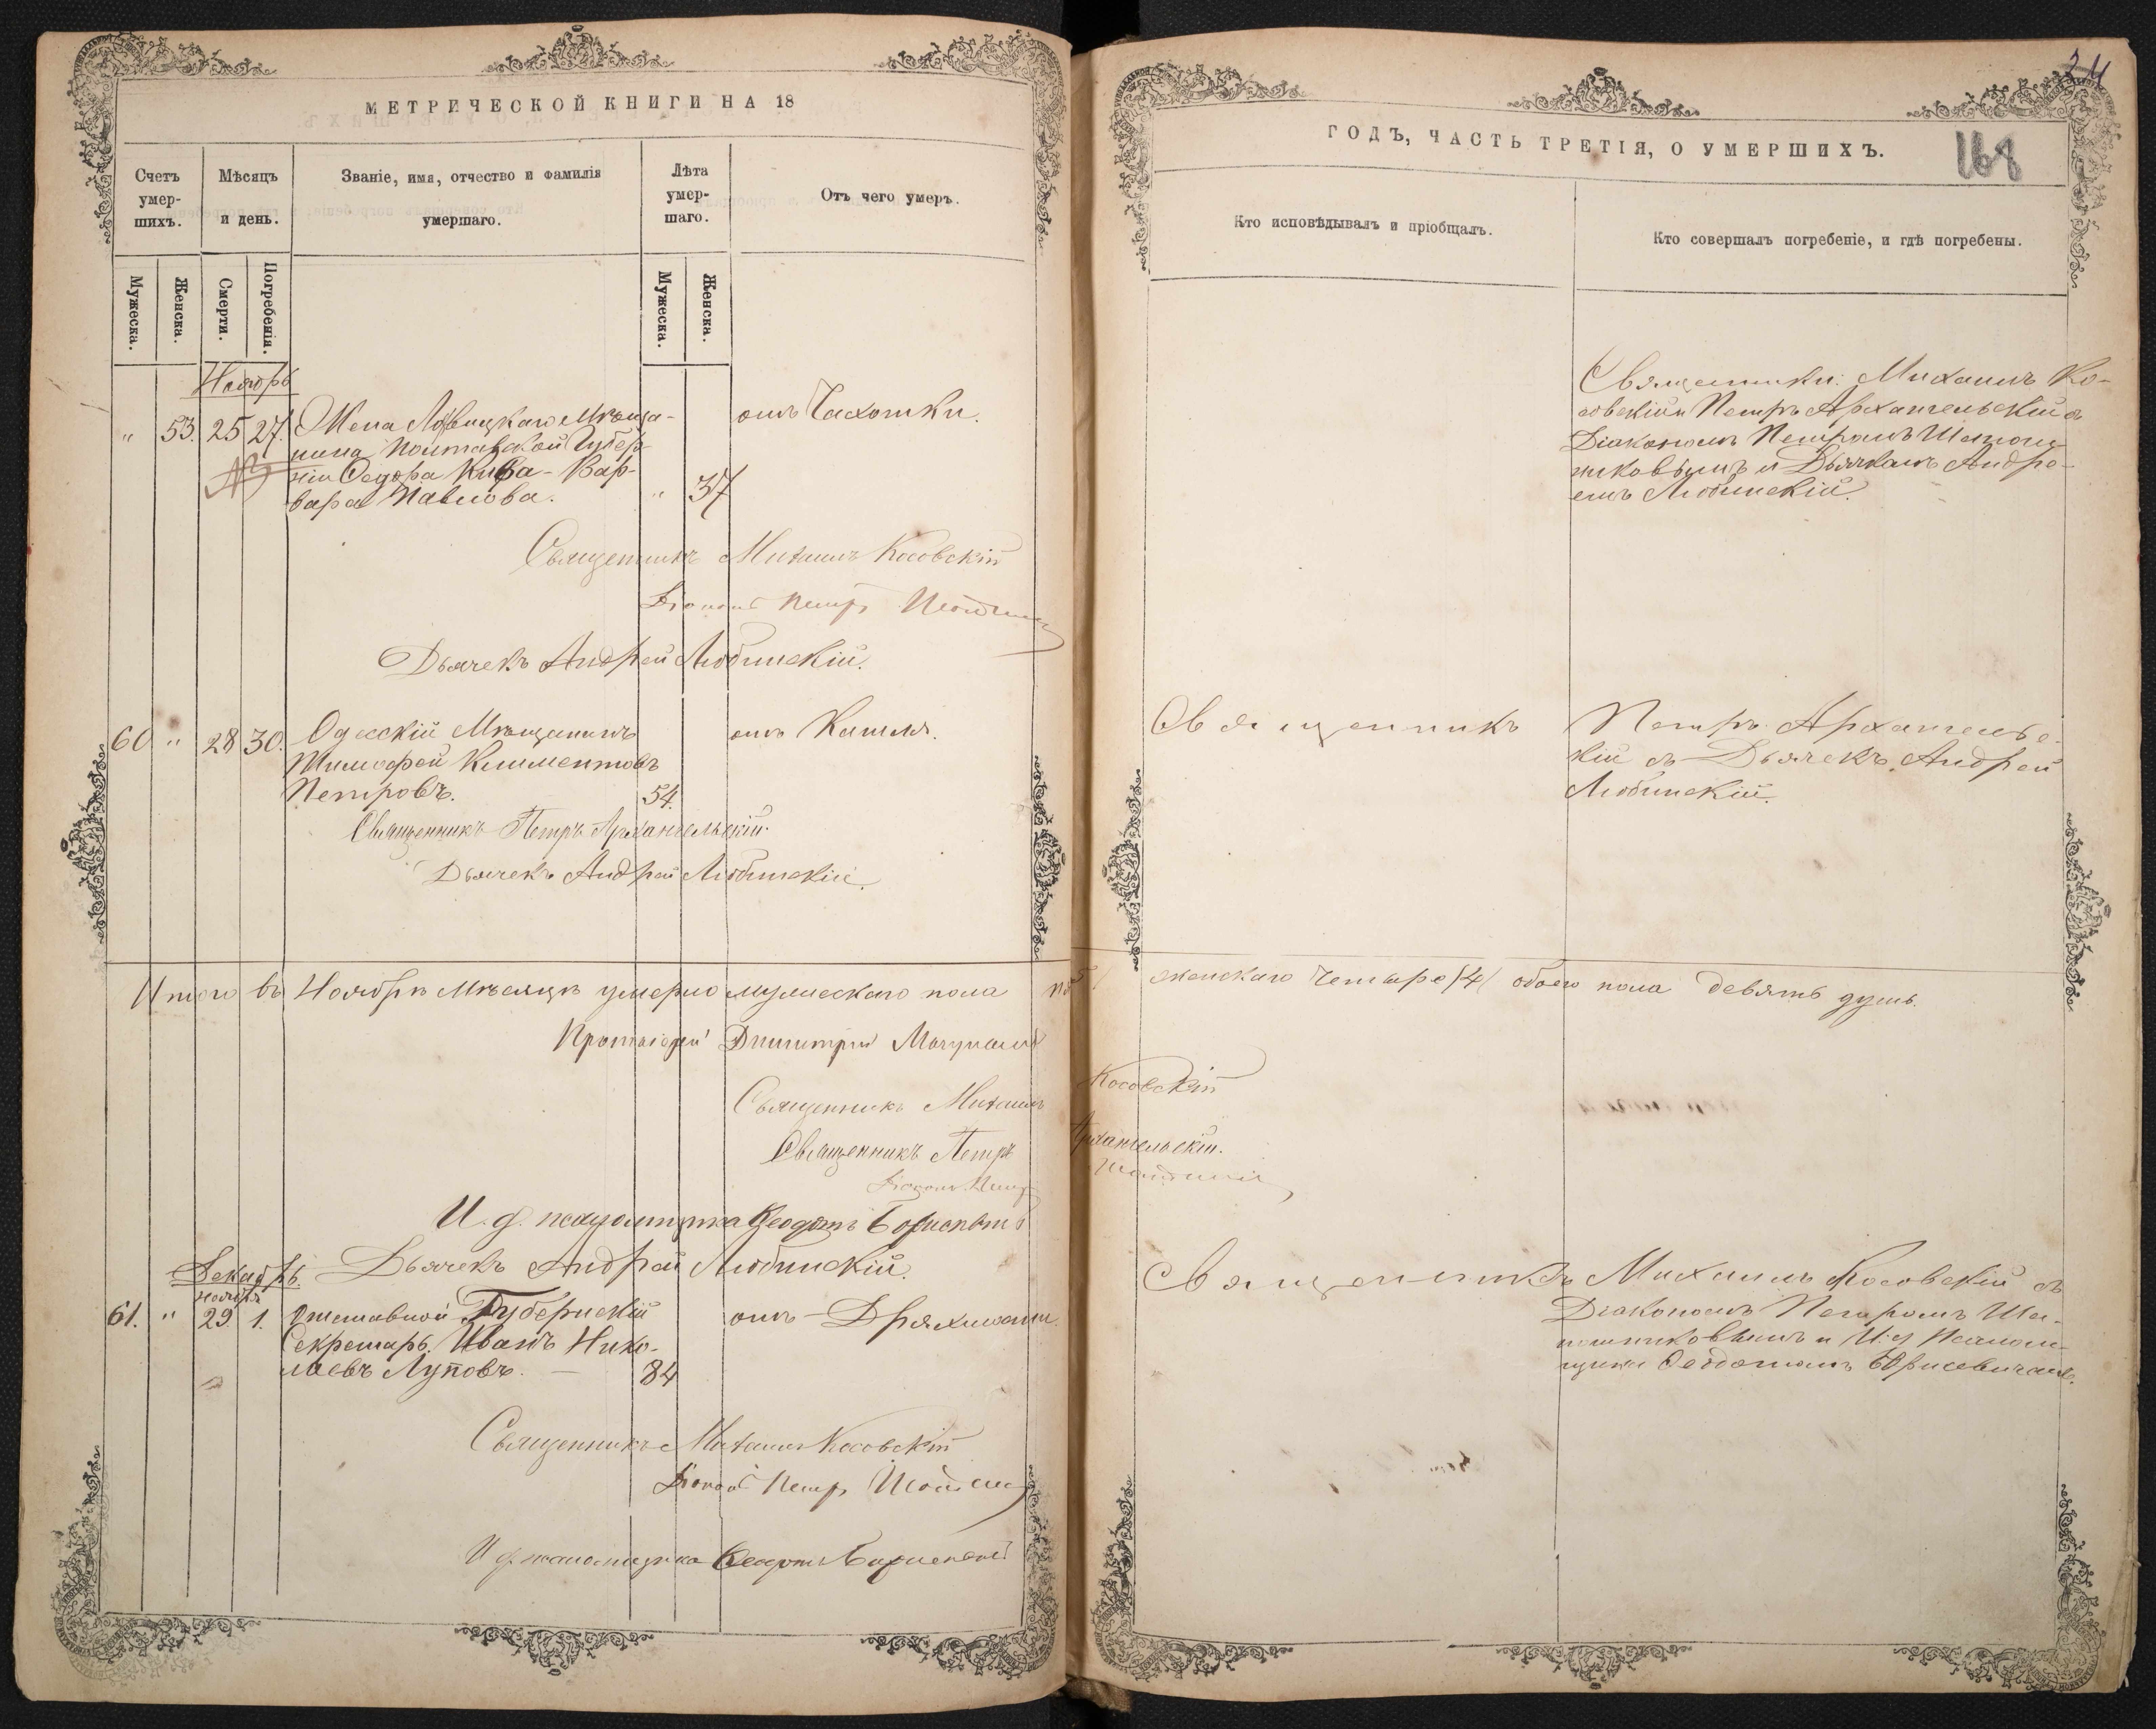 МЕТРИЧЕСКОЙ КНИГИ НА 18
Счетъ умер-шихъ.
Мѣсяцъ и день.
Званіе, имя, отчество и фамилія умершаго.
Лѣта умер-шаго.
Отъ чего умеръ.
Мужеска.
Женска.
Смерти.
Погребенія.
Мужеска.
Женска.
Ноябрь
" 53. 25 27. Жена Мѣща- отъ Чахотки.
нина Полтавской Губер-
ніи Ѳедора - Вар-
вара Павлова. " 37
Священникъ Михаилъ Косовскій
Діаконъ Петръ
Дьячекъ Андрей Любинскій.
60 " 28 30. Одесскій Мѣщанинъ отъ Кашля.
Тимофей Климентовъ
Петровъ. 54.
Священникъ Петръ Архангельскій.
Дьячекъ Андрей Любинскій.
Итого въ Ноябрѣ Мѣсяцѣ умерло мужескаго пола
Протоіерей Димитрій
Священникъ Михаилъ
Священникъ Петръ
Діаконъ Петръ
И. д. псаломщика Ѳеодотъ
Дьячекъ Андрей Любинскій.
Декабрь.
Ноября
61. " 29. 1. Отставной Губернскій отъ Дряхлости.
Секретарь Иванъ Нико-
лаевъ Луповъ. — 84
Священникъ Михаилъ Косовскій
Діаконъ Петръ
И д псаломщика Ѳеодотъ
24
168
ГОДЪ, ЧАСТЬ ТРЕТІЯ, О УМЕРШИХЪ.
Кто исповѣдывалъ и пріобщалъ.
Кто совершалъ погребеніе, и гдѣ погребены.
Священники: Михаилъ Ко-
совскій и Петръ Архангельскій съ
Діакономъ Петромъ Шапош-
никовымъ и Дьячкомъ Андре-
емъ Любинскій.
Священникъ Петръ Архангельс-
кій съ Дьячекъ Андрей
Любинскій.
женскаго Четыре /4/ обоего пола девять душъ.
Косовскій
Архангельскій.
Священникъ Михаилъ Косовскій съ
Діакономъ Петромъ Ша-
пошниковымъ и И. д Псалом-
щика Ѳеодотомъ Борисевичемъ.